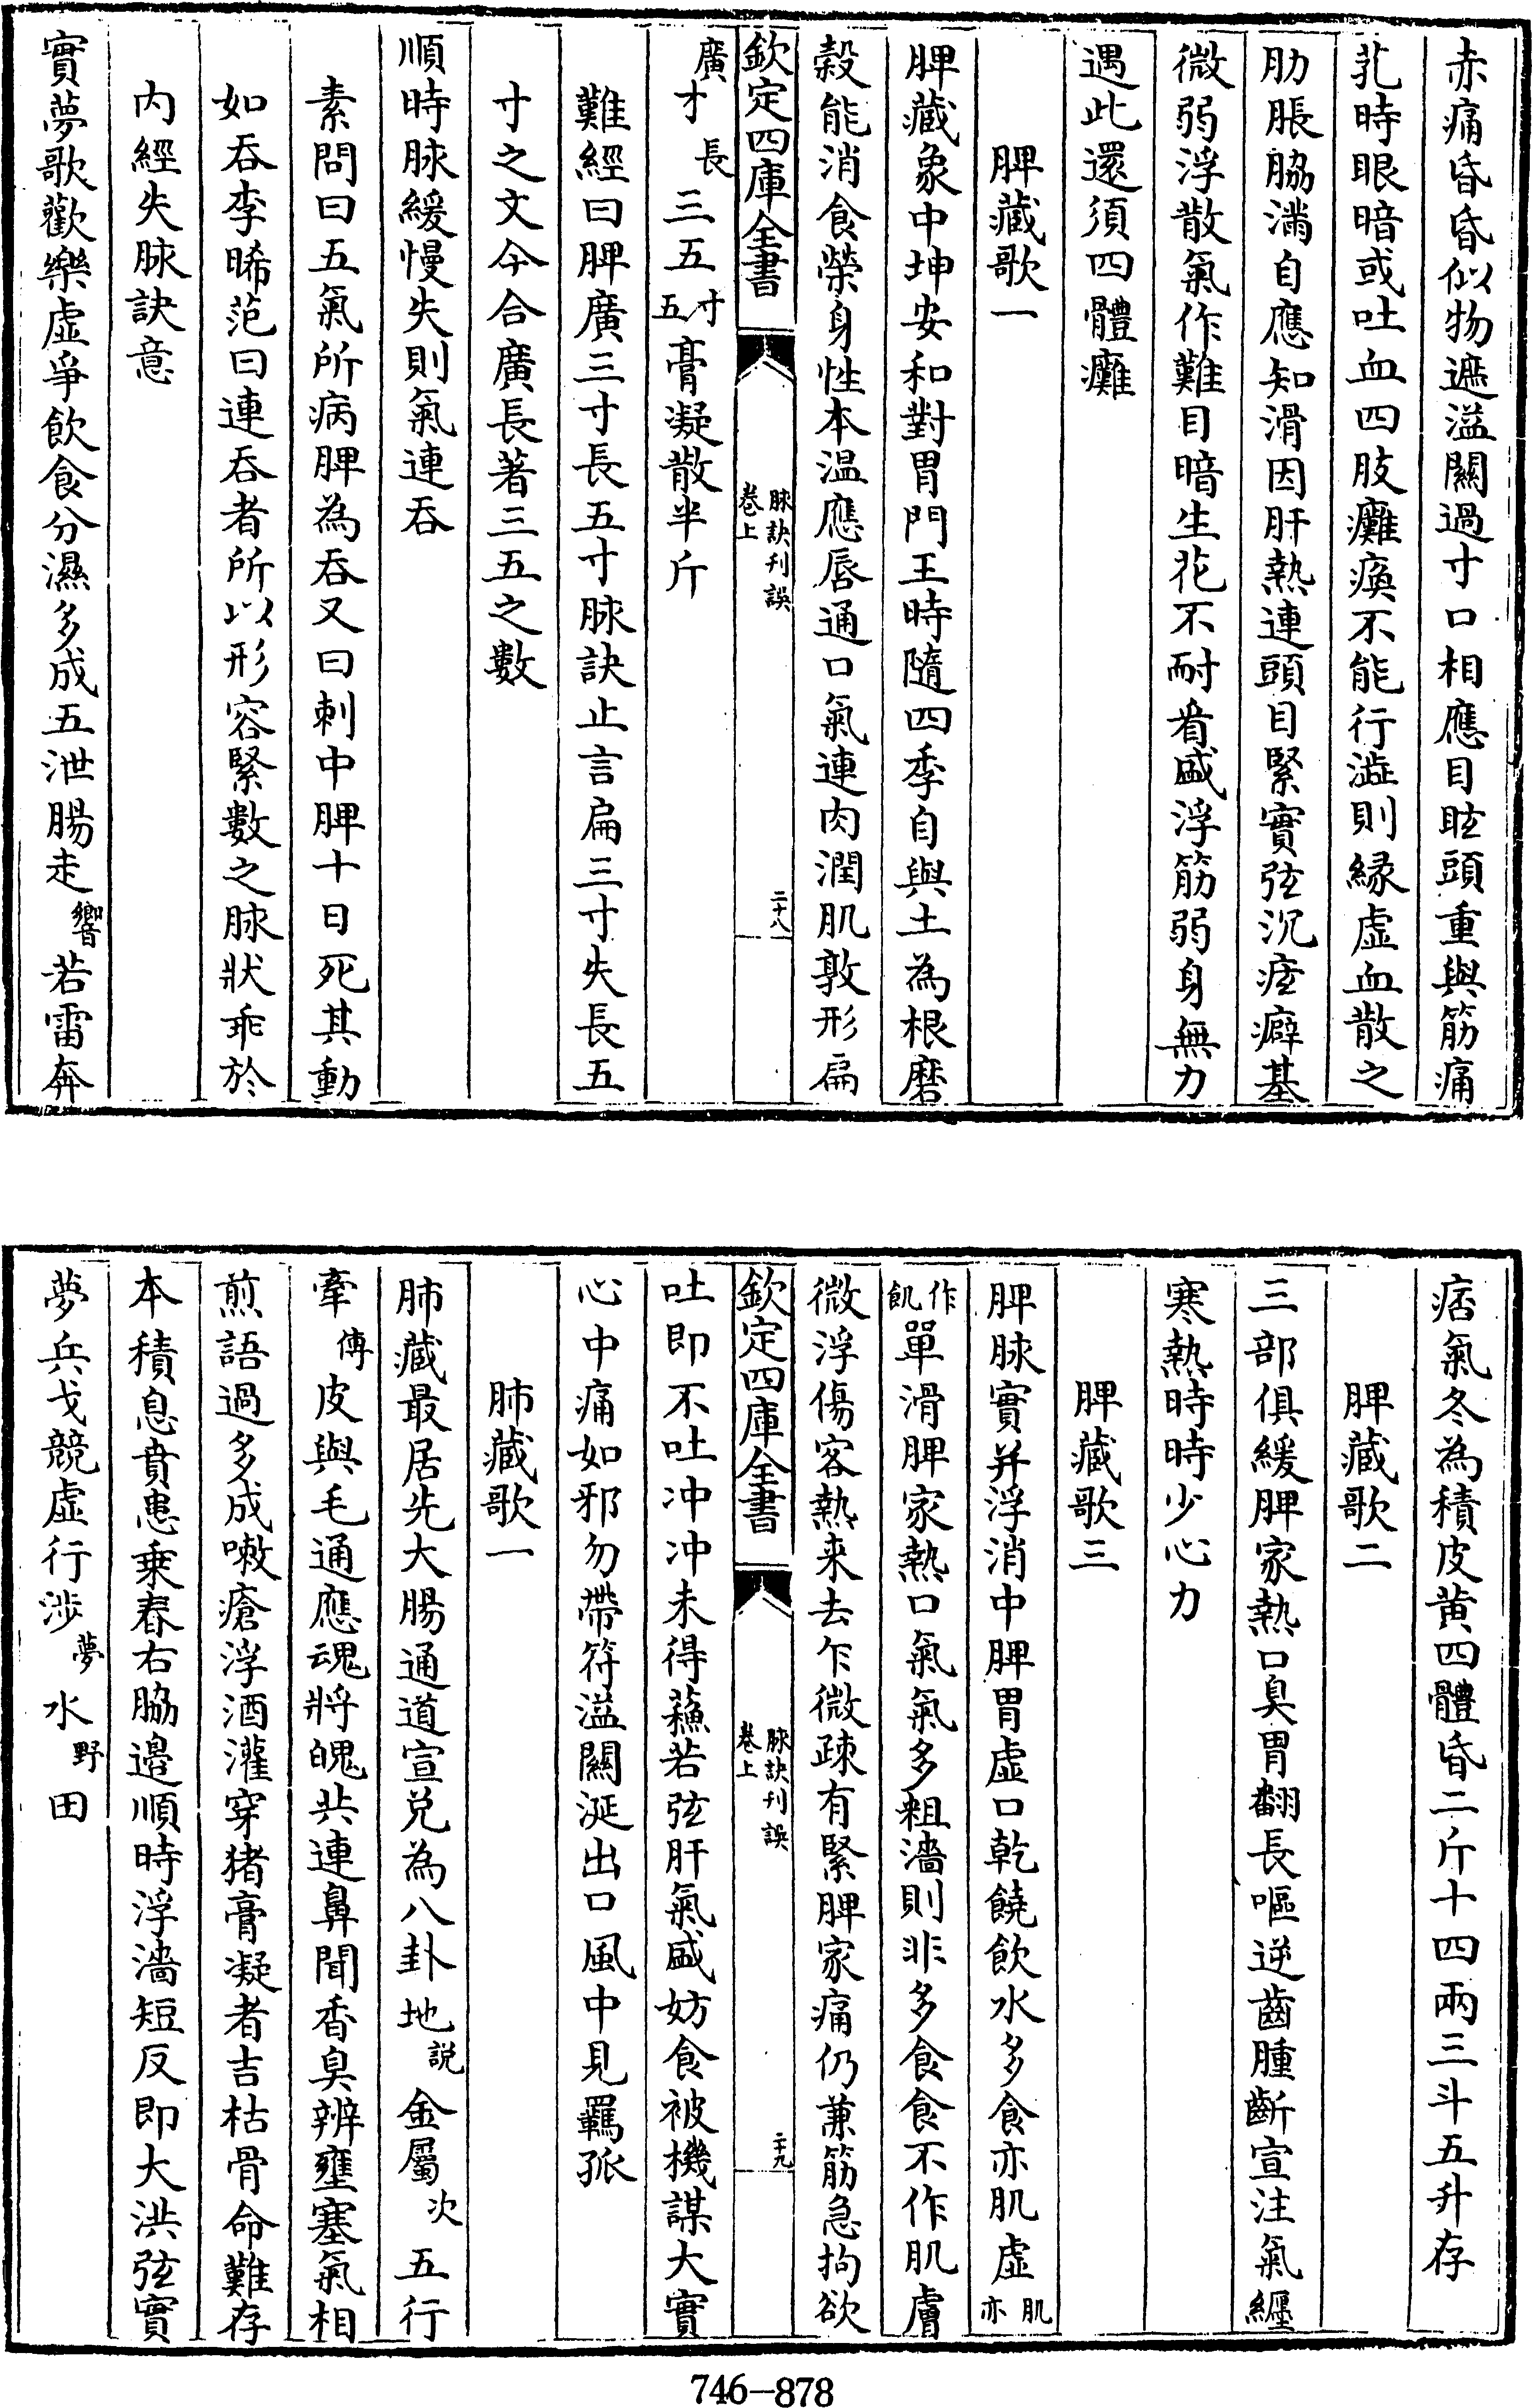 赤痛昏昏似物遮溢關過寸口相應目眩頭重與筋痛
芤時眼暗或吐血四肢癱瘓不能行澁則緣虛血散之
肋脹脇滿自應知滑因肝熱連頭目緊實弦沉痃癖基
微弱浮散氣作難目暗生花不耐看盛浮筋弱身無力
遇此還須四體癱
脾藏歌一
脾藏象中坤安和對胃門王時隨四季自與土為根磨
榖能消食榮身性本温應唇通口氣連肉潤肌敦形扁
欽定四庫全書 脉訣刋誤 卷上 二十八
廣才長三五寸五膏凝散半斤
難經曰脾廣三寸長五寸脉訣止言扁三寸失長五
寸之文今合廣長著三五之數
順時脉緩慢失則氣連吞
素問曰五氣所病脾為吞又曰刺中脾十日死其動
如吞李晞范曰連吞者所以形容緊數之脉狀乖於
内經失脉訣意
實夢歌歡樂虛爭飲食分濕多成五泄腸走響若雷奔
痞氣冬為積皮黄四體昏二斤十四兩三斗五升存
脾藏歌二
三部俱緩脾家熱口臭胃翻長嘔逆齒腫齗宣注氣纒
寒熱時時少心力
脾藏歌三
脾脉實并浮消中脾胃虛口乾饒飲水多食亦肌虛肌亦
作飢單滑脾家熱口氣氣多粗濇則非多食食不作肌膚
微浮傷客熱来去乍微疎有緊脾家痛仍兼筋急拘欲
欽定四庫全書 脉訣刋誤 卷上 二十九
吐即不吐冲冲未得蘓若弦肝氣盛妨食被機謀大實
心中痛如邪勿帶符溢關涎出口風中見羈孤
肺藏歌一
肺藏最居先大腸通道宣兑為八卦地說金屬次五行
牽傳皮與毛通應魂將魄共連鼻聞香臭辨壅塞氣相
煎語過多成嗽瘡浮酒灌穿猪膏凝者吉枯骨命難存
本積息賁患乗春右脇邉順時浮濇短反即大洪弦實
夢兵戈競虛行渉夢水野田
746—878